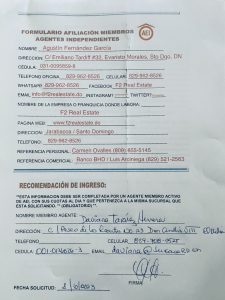 FORMULARIO AFILIACIÓN MIEMBROS
AGENTES INDEPENDIENTES
AEI
NOMBRE Agustín Fernández García
DIRECCIÓN: C/ Emiliano Tardiff #32, Evaristo Morales, Sto Dgo, DN
CÉDULA: 031-0095859-8
TELEFONO OFICINA 829-962-8526 CELULAR: 829-962-8526
WHATSAPP 829-962-8526 FACEBOOK F2 Real Estate
EMAIL info@f2realestate.do INSTAGRAM TWITTER
NOMBRE DE LA EMPRESA O FRANQUICIA DONDE LABORA:
F2 Real Estate
PAGINA WEB: www.f2realestate.do
DIRECCIÓN: Jarabacoa / Santo Domingo
TELEFONO: 829-962-8526
REFERENCIA PERSONAL: Carmen Ovalles (809) 655-5145
REFERENCIA COMERCIAL: Banco BHD / Luis Arciniega (829) 521-2563
RECOMENDACIÓN DE INGRESO:
*ESTA INFORMACIÓN DEBE SER COMPLETADA POR UN AGENTE MIEMBRO ACTIVO
DE AEI, CON SUS CUOTAS AL DIA Y QUE PERTENEZCA A LA MISMA SUCURSAL QUE
ESTA SOLICITANDO. **(OBLIGATORIO)**
NOMBRE MIEMBRO AGENTE
DIRECCIÓN C/
TELEFONO CELULAR 809-708-
CÉDULA EMAIL
FIRMA
FECHA SOLICITUD: